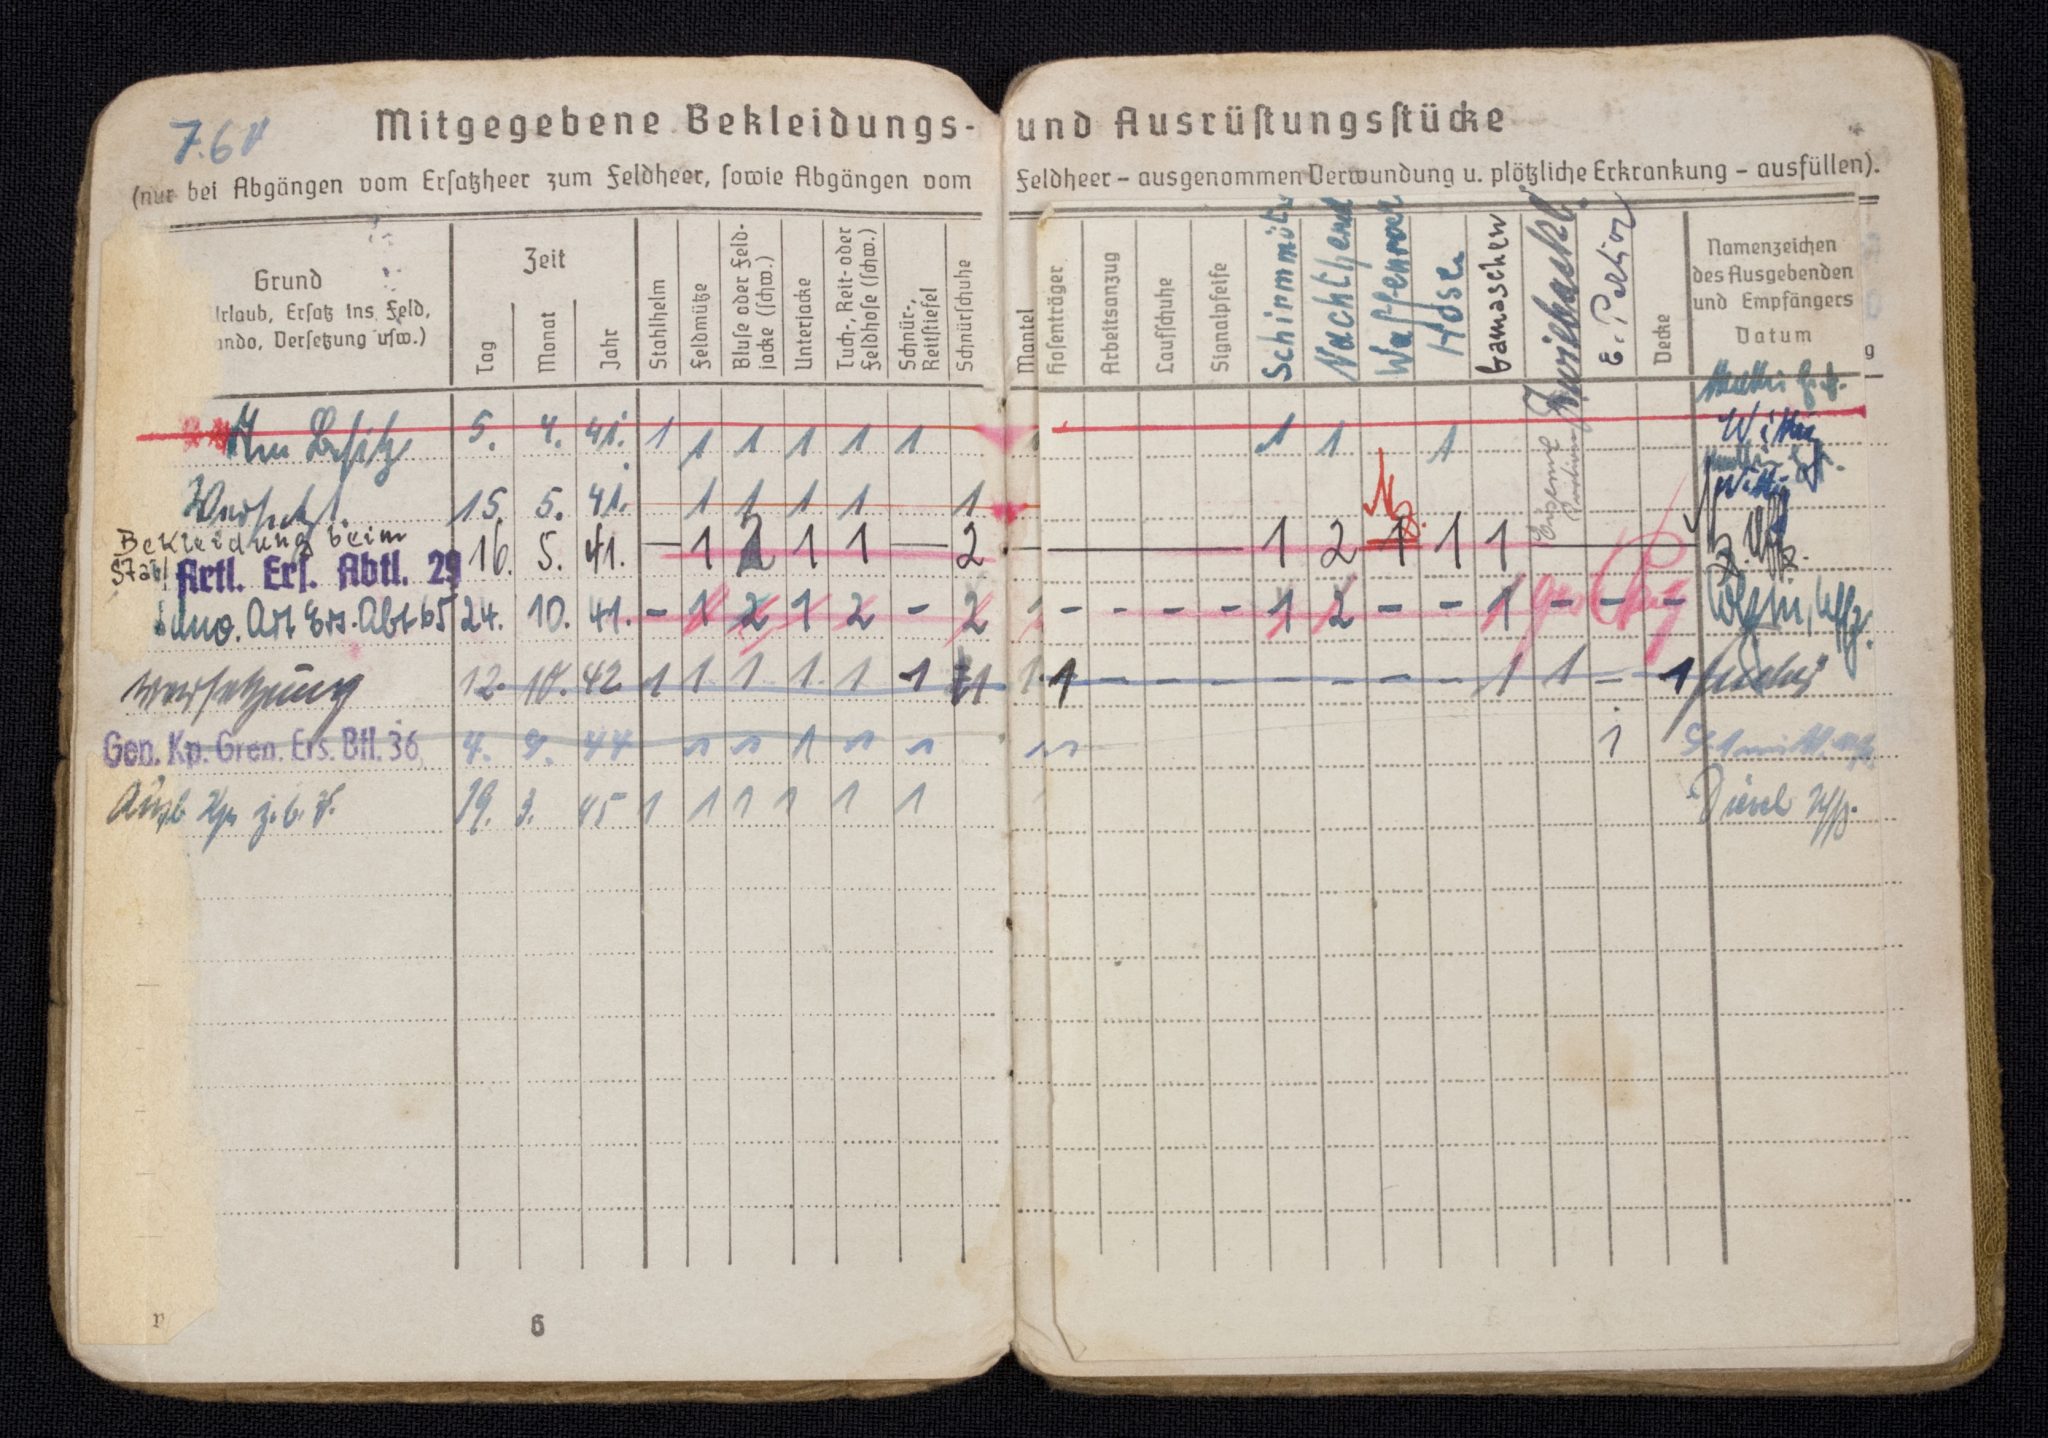 Mitgegebene Bekleidungs- und Ausrüstungsstücke
(nur bei Abgängen vom Ersatzheer zum Feldheer, sowie Abgängen vom Feldheer – ausgenommen Verwundung u. plötzliche Erkrankung – ausfüllen).
Grund
Urlaub, Ersatz ins Feld,
Versetzung usw.)
Zeit
Tag
Monat
Jahr
Stahlhelm
Feldmütze
Bluse oder Feld-
jacke (schw.)
Unterjacke
Tuch-, Reit- oder
Feldhose (schw.)
Schnür-,
Reitstiefel
Schnürschuhe
Mantel
Hosenträger
Arbeitsanzug
Laufschuhe
Signalpfeife
Schirmmütz
Nachthemd
Waffenrock
Hose
Gamaschen
E. Portion
Decke
Namenzeichen
des Ausgebenden
und Empfängers
Datum
g
Im Besitz 5. 4. 41. 1 1 1 1 1 1 1 1 1
Versetzt. 15. 5. 41. 1 1 1 1 1
Bekleidung beim
Stab Artl. Ers. Abtl. 29 16. 5. 41. — 1 2 1 1 — 2 — 1 2 1 1 1
Art Ers. Abt 65 24. 10. 41. - 1 2 1 2 - 2 1 - - - - 1 2 - - 1 - - -
Versetzung 12. 10. 42 1 1 1 1 1 1 1 1 1 - - - - - - - 1 1 - 1
Gen. Kp. Gren. Ers. Btl. 36 4. 9. 44 1 1 1 1 1 1 1
19. 3. 45 1 1 1 1 1 1 Uffz.
6